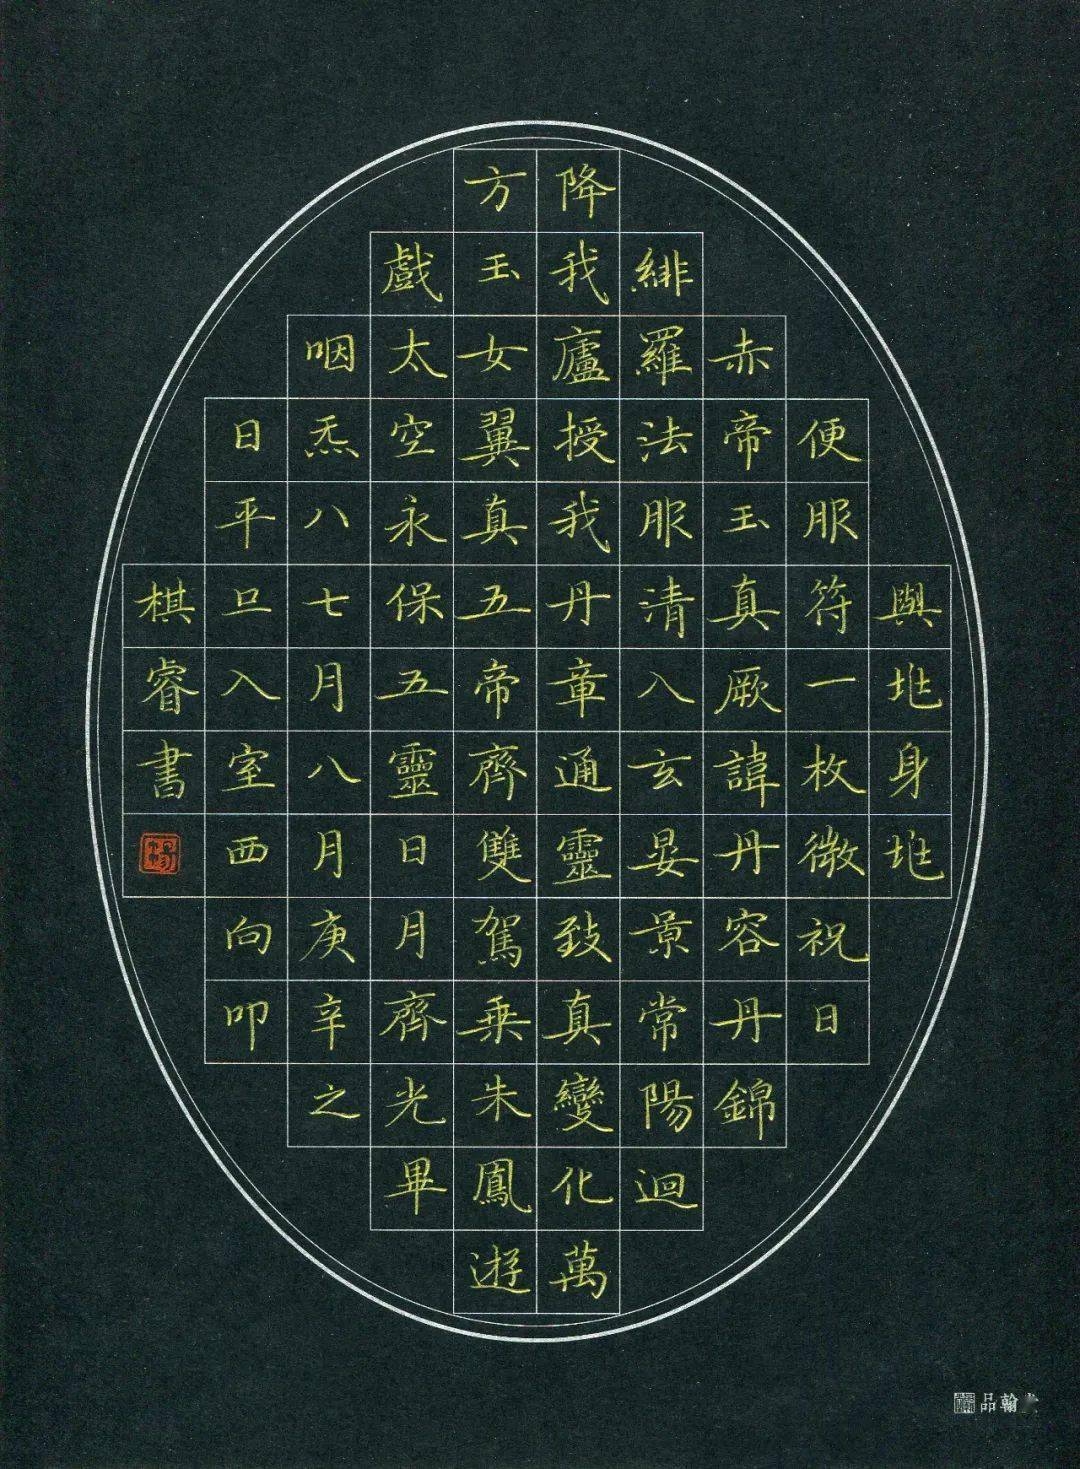 與兆身兆
便服符一枚微祝日
赤帝玉真厥諱丹容丹錦
緋羅法服清八玄晏景常陽迴
降我廬授我丹章通靈致真變化萬
方玉女翼真五帝齊雙駕乘朱鳳遊
戲太空永保五靈日月齊光畢
咽炁八七月八月庚辛之
日平旦入室西向叩
棋睿書
翰品